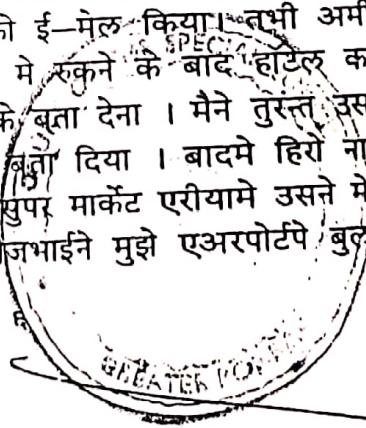 ी ई–मेल किया। तभी अमी
मे रुकने के बाद हॉटेल क
के बता देना । मैने तुरंन्त उस
बता दिया । बादमे हिरो ना
सुपर मार्केट एरीयामे उसने मे
जभाईने मुझे एअरपोर्टपे बुल
SPEC
GREATER